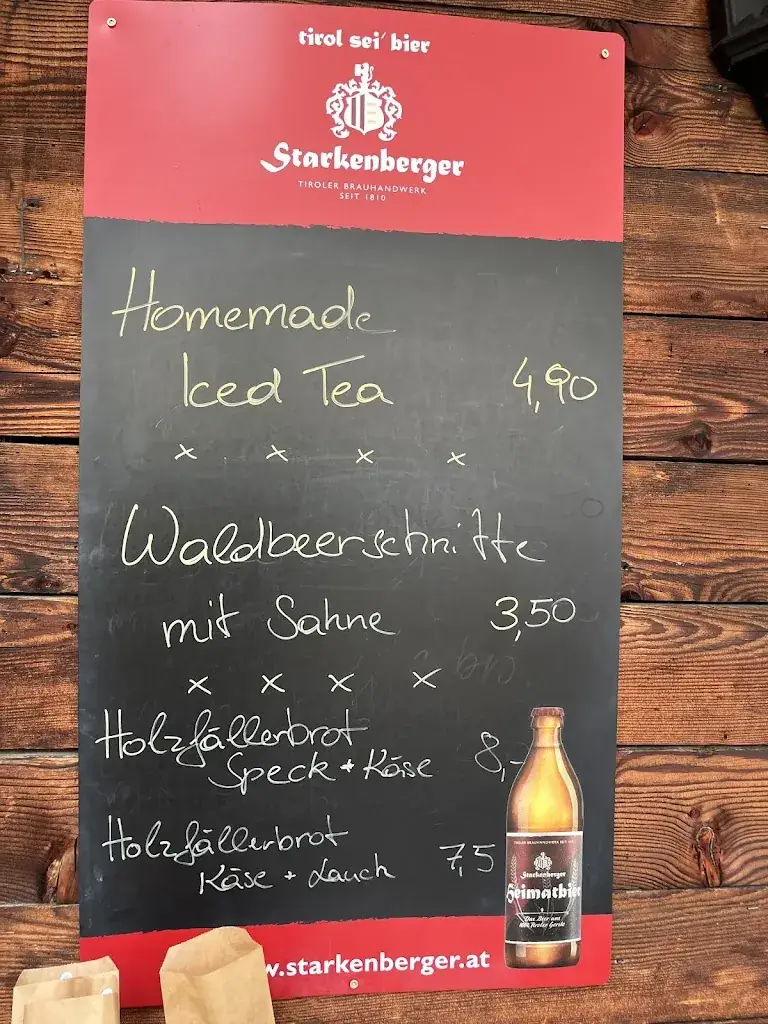 tirol sei' bier
Starkenberger
TIROLER BRAUHANDWERK
SEIT 1810
Homemade
Iced Tea 4,90
x x x x
Waldbeerschnitte
mit Sahne 3,50
x x x x
Holzfällerbrot
Speck + Käse 8,-
Holzfällerbrot
Käse + Lauch 7,5
TIROLER BRAUHANDWERK SEIT
Starkenberger
Heimatbier
Das Bier aus
100% Tiroler Gerste
w.starkenberger.at